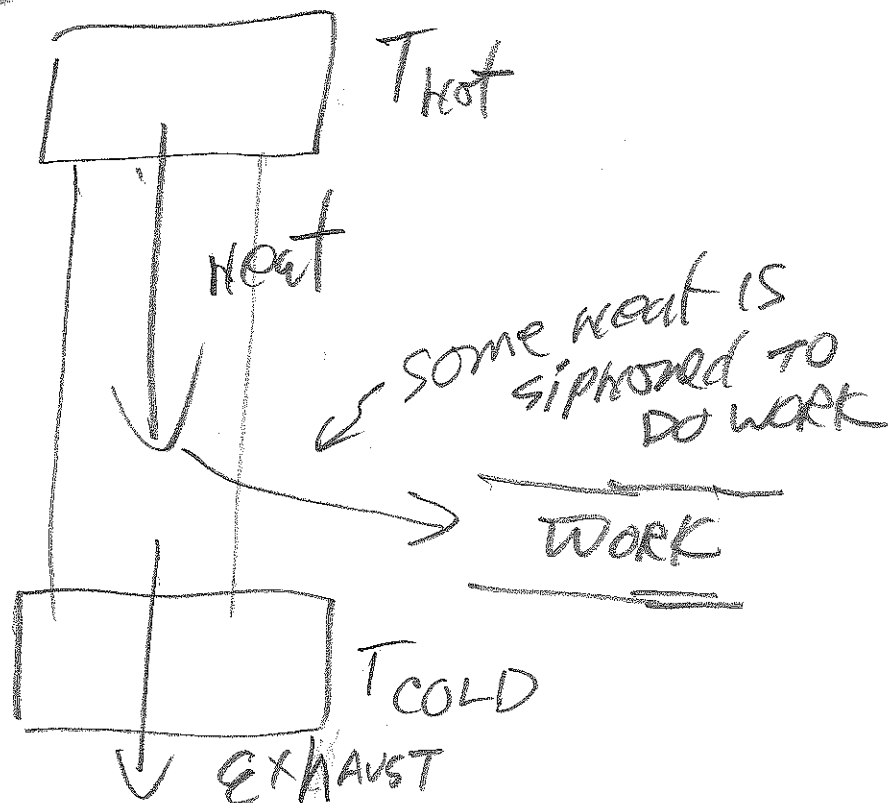 T hot
Heat
some heat is
siphoned TO
DO WORK
WORK
T COLD
EXHAUST